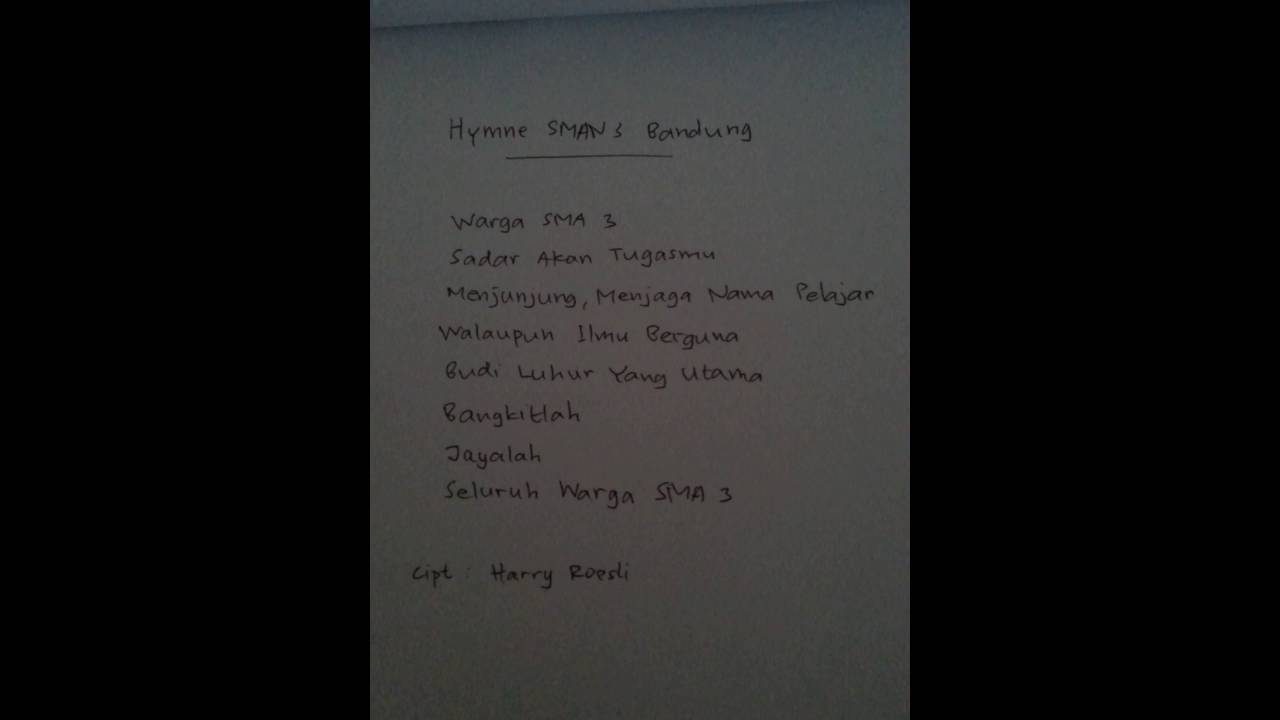 Hymne SMAN 3 Bandung
Warga SMA 3
Sadar Akan Tugasmu
Menjunjung, Menjaga Nama Pelajar
Walaupun Ilmu Berguna
Budi Luhur Yang Utama
Bangkitlah
Jayalah
Seluruh Warga SMA 3
Cipt : Harry Roesli